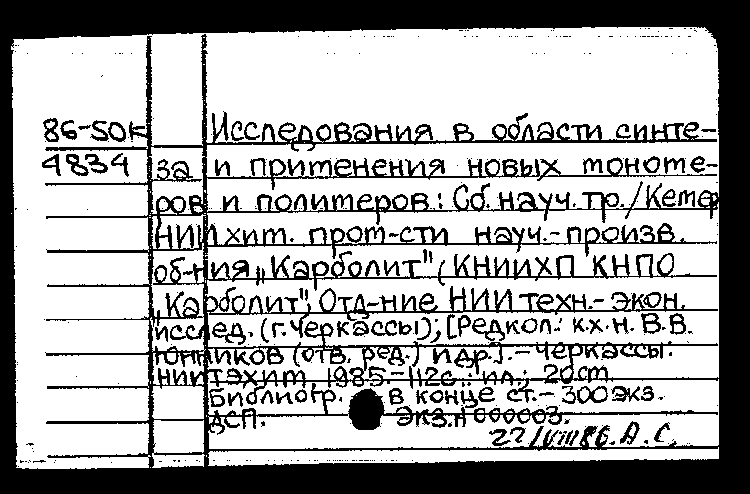 86-5ОК Исследования в области синте-
4834 за и применения новых мономе-
ров и полимеров: Сб. науч. тр./Кемер
НИИ хим. пром-сти науч.-произв.
об-ния „Карболит" (КНИИХП КНПО
„Карболит"), Отд-ние НИИ техн.-экон.
исслед. (г. Черкассы); [Редкол.: к.х.н. В.В.
(отв. ред.) и др.]. – Черкассы:
НИИТЭХИМ, 1985.-112с.: ил.; 20см.
Библиогр. в конце ст.- 300 экз.
ДСП. Экз.N 000003.
22/VIII 86. А.С.